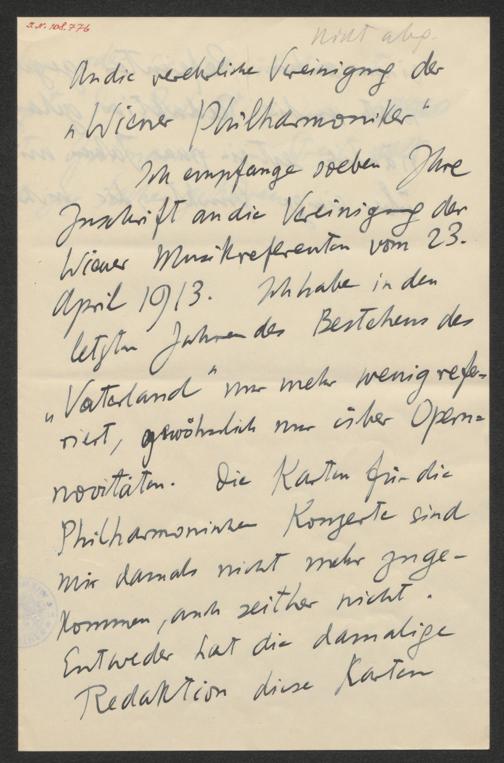 I.N. 108.776
nicht abg.
An die verehrliche Vereinigung der
„Wiener Philharmoniker“
Ich empfange soeben Ihre
Zuschrift an die Vereinigung der
Wiener Musikreferenten vom 23.
April 1913. Ich habe in den
letzten Jahren des Bestehens des
„Vaterland“ nur mehr wenig refe-
riert, gewöhnlich nur über Opern=
novitäten. Die Karten für die
Philharmonischen Konzerte sind
mir damals nicht mehr zuge-
kommen, auch seither nicht.
Entweder hat die damalige
Redaktion diese Karten